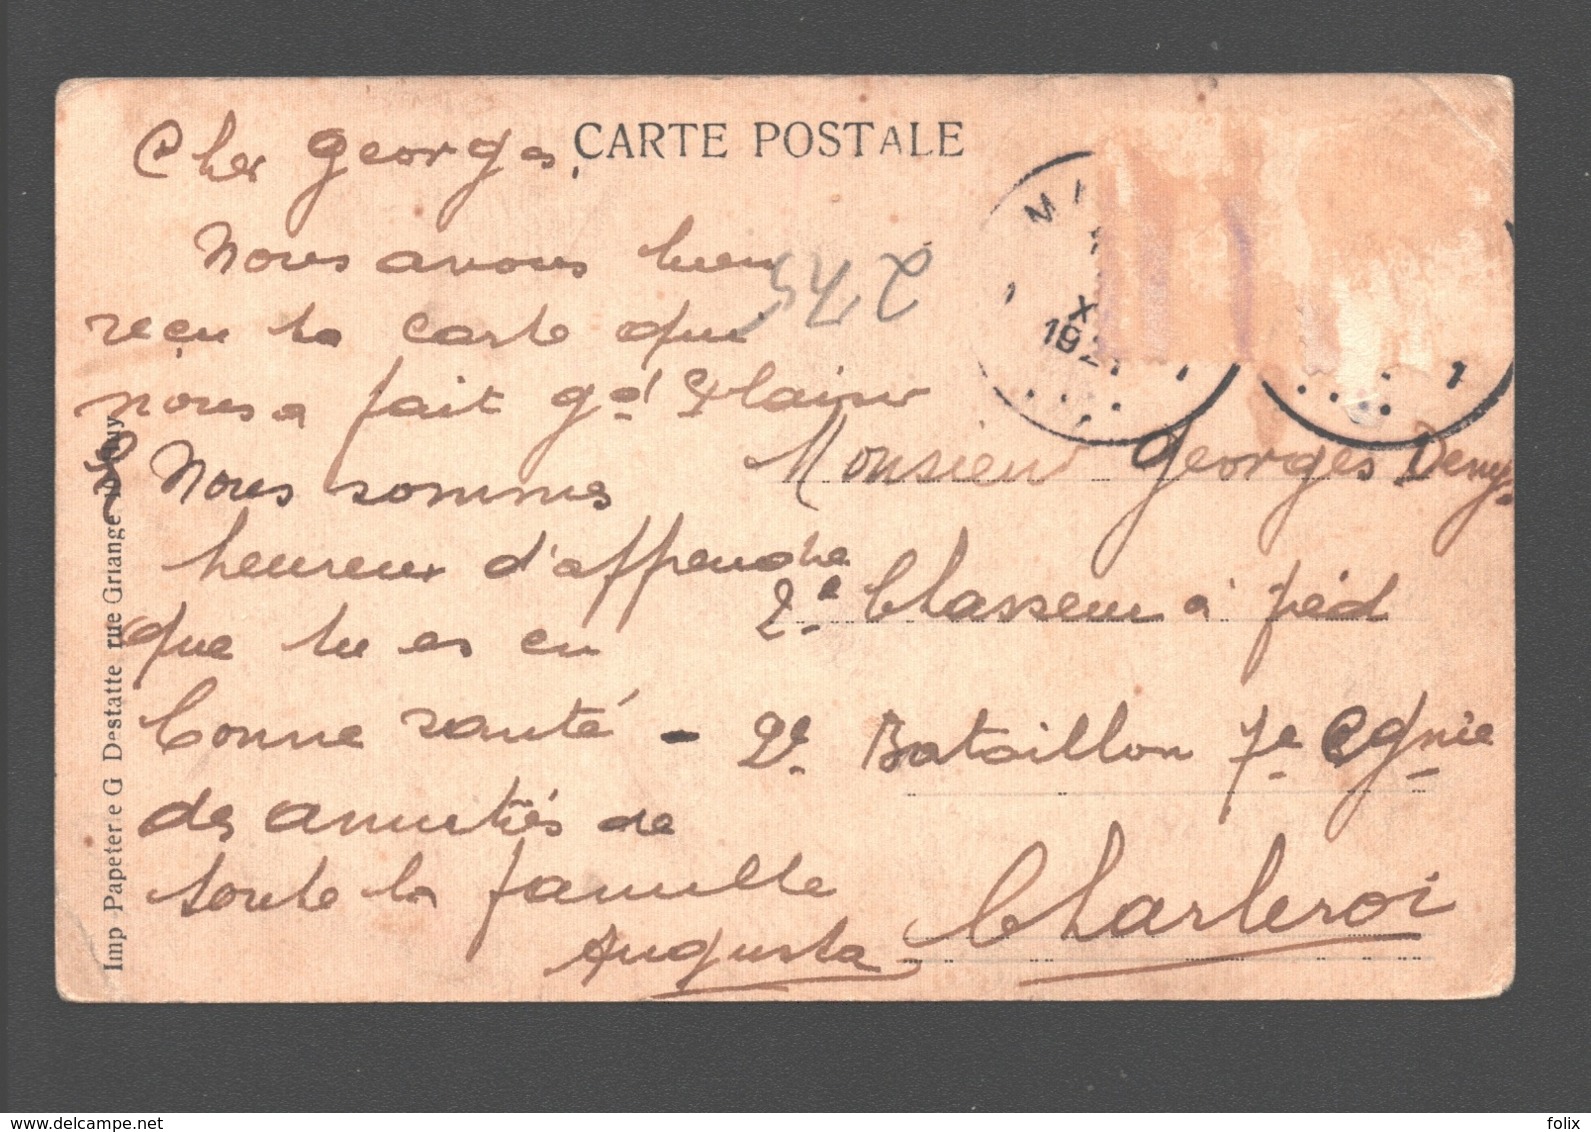 CARTE POSTALE
Cher Georges,
Nous avons bien
reçu ta carte qui
nous a fait gd plaisir
Nous sommes
heureux d'apprendre
que tu es en
bonne santé -
des amitiés de
toute la famille
Augusta
Monsieur Georges
2e Chasseur à pied
2e Bataillon 7e Cgnie
Charleroi
Imp Papeterie G Destatte rue Griange
X
192
www.delcampe.net
folix